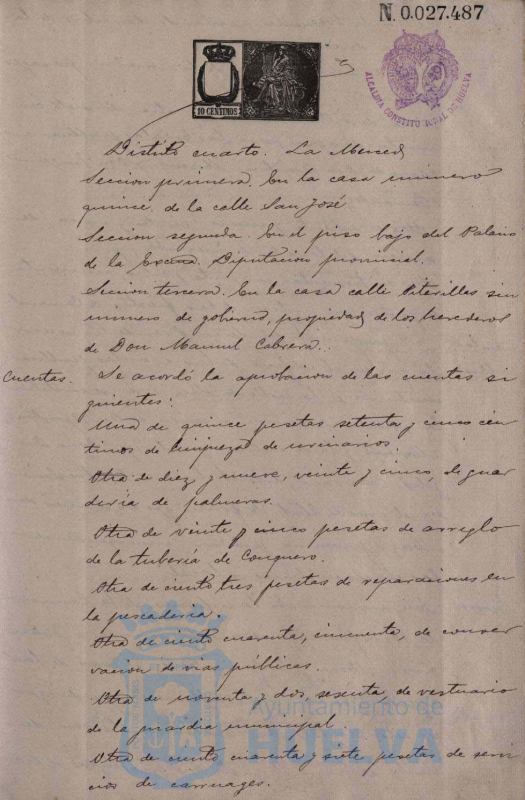 N. 0.027.487
10 CENTIMOS
ALCALDIA CONSTITUCIONAL DE HUELVA
Distrito cuarto. La Merced
Seccion primera. En la casa numero
quince de la calle San José
Seccion segunda. En el piso bajo del Palacio
de la Excma. Diputacion provincial.
Seccion tercera. En la casa calle Piterillas sin
numero de gobierno, propiedad de los herederos
de Don Manuel Cabrera.
Cuentas. Se acordó la aprobacion de las cuentas si
guientes:
Una de quince pesetas setenta y cinco cén
timos de limpieza de urinarios.
Otra de diez y nueve, veinte y cinco, de guar
deria de palmeras.
Otra de veinte y cinco pesetas de arreglo
de la tubería de Conquero.
Otra de ciento tres pesetas de reparaciones en
la pescaderia.
Otra de ciento cuarenta, cincuenta, de conser
vacion de vias públicas.
Otra de noventa y dos, sesenta, de vestuario
de la guardia municipal.
Otra de ciento cuarenta y siete pesetas de servi
cios de carruages.
Ayuntamiento de
HUELVA